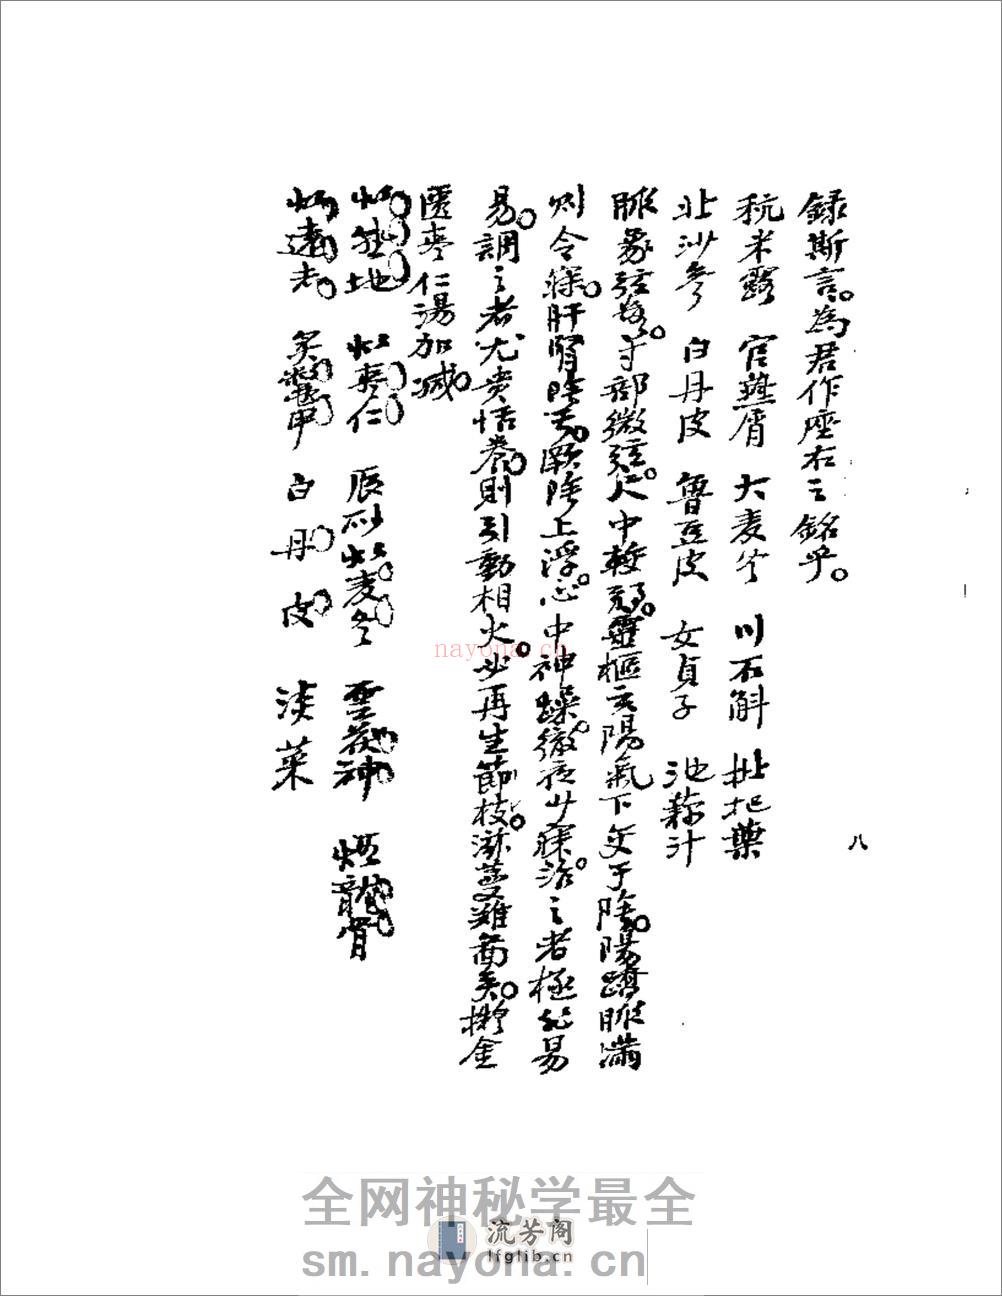 錄斯言。為君作座右之銘乎。
秔米露 官燕屑 大麦冬 川石斛 枇杷葉
北沙參 白丹皮 魯豆皮 女貞子 池蘇汁
脈象弦 。寸部微弦。人中 。靈樞云陽氣下交于陰。陽蹻脈滿
则令寐。肝腎陰 。厥陰上浮。心中神躁。徹夜少寐。治之者極非易
易。調之者尤贵恬養。則引動相火。必再生節枝。滋蔓難啚矣。擬金
匱枣仁湯加减。
熟地 枣仁 辰砂 麦冬 雲茯神 煅龍骨
遠志 炙鱉甲 白丹皮 淡菜
八
nayona.cn
全网神秘学最全
流芳阁
lfglib.cn
sm.nayona.cn